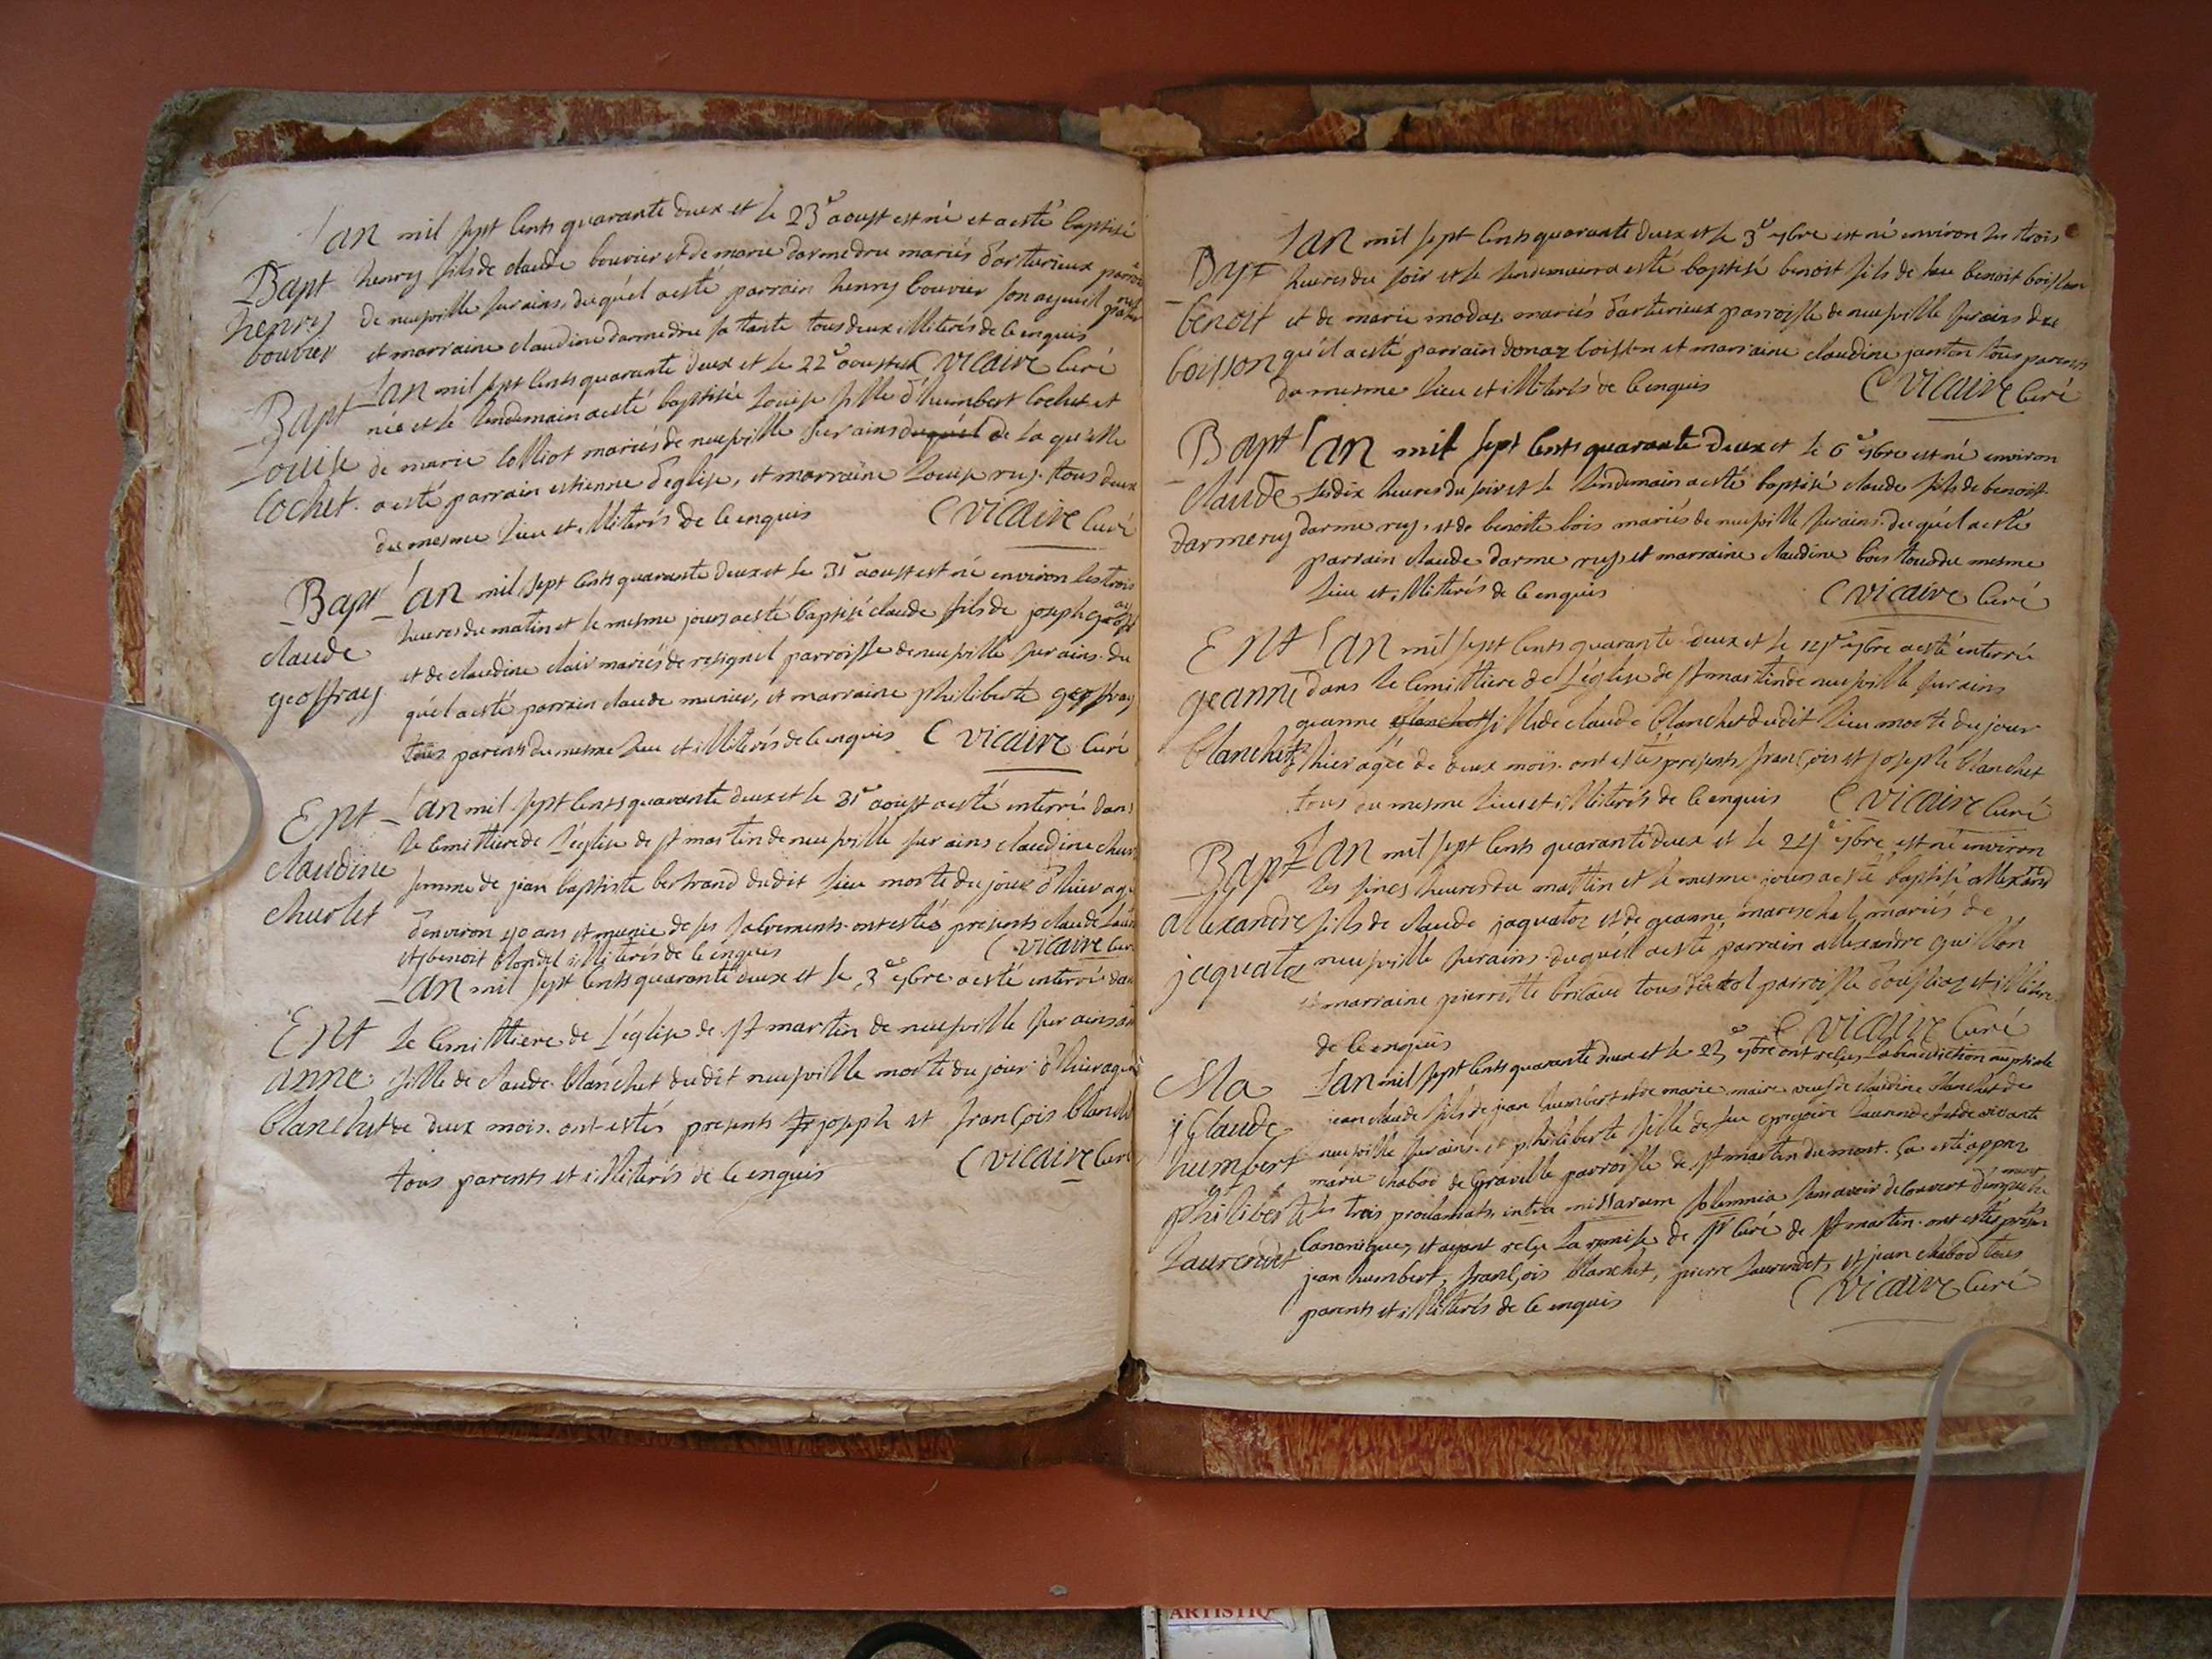 Lan mil sept cents quarante deux et le 23e aoust est né et a esté baptisé
Bapt henry fils de claude bouvier et de marie darmedru mariés d'arturieux parroi
henry de neufville sur ains, duquél a esté parrain henry bouvier son ayeuil
bouvier et marraine claudine darmedru sa tante tous deux illiterés de ce enquis
Lan mil sept cents quarante deux et le 22e aoust est C vicaire Curé
Bapt née et le lendemain a esté baptisée Louise fille d'humbert Cochet et
Louise de marie Colliot mariés de neufville sur ains duquél de laquélle
Cochet a esté parrain estienne d'eglise, et marraine Louise ruy tous deux
du mesme lieu et illiterés de ce enquis C vicaire Curé
Bapt Lan mil sept cents quarante deux et le 31e aoust est né environ les trois
heures du matin et le mesme jours a esté baptisé claude fils de joseph geoffray
claude et de claudine clair mariés de resignel parroisse de neufville sur ains. du
geoffray quél a esté parrain claude munier, et marraine philiberte geoffray
tous parents du mesme lieu et illiterés de ce enquis C vicaire Curé
Ent Lan mil sept cents quarante deux et le 31e aoust a esté enterré dans
le Cemittiere de L'église de st martin de neufville sur ains claudine chur
claudine femme de jean baptiste bertrand dudit lieu morte du jour d'hier agé
churlet d'environ 40 ans et munie de ses sacrements. ont estés présents claude
et benoit blondel illiterés de ce enquis C vicaire Cur
Lan mil sept cents quarante deux et le 3e 7bre a esté enterré dan
Ent le Cemittiere de L'église de st martin de neufville sur ains
anne fille de claude blanchet dudit neufville morte du jour d'hier agée
blanchet de deux mois. ont estés presents joseph et françois blanch
tous parents et illiterés de ce enquis C vicaire Cur
Lan mil sept cents quarante deux et le 3e 7bre est né environ les trois
Bapt heures du soir et le lendemain a esté baptisé benoit fils de feu benoit boisson
benoit et de marie modaz mariés d'arturieux parroisse de neufville sur ains du
boisson quél a esté parrain donaz boisson et marraine claudine janton tous parents
du mesme lieu et illiterés de ce enquis C vicaire Curé
Bapt Lan mil sept cents quarante deux et le 6e 7bre est né environ
claude les dix heures du soir et le lendemain a esté baptisé claude fils de benoist
darmeruy darme ruy, et de benoite bois mariés de neufville sur ains. duquél a esté
parrain claude darme ruy, et marraine claudine bois tous du mesme
lieu et illiterés de ce enquis C vicaire Curé
Ent Lan mil sept cents quarante deux et le 7bre a esté enterrée
geanne dans le Cemittiere de L'église de st martin de neufville sur ains
geanne fille de claude blanchet dudit lieu morte du jour
blanchet d'hier agée de deux mois. ont estés presents françois et joseph blanchet
tous du mesme lieu et illiterés de ce enquis C vicaire Curé
Bapt Lan mil sept cents quarante deux et le 24e 7bre est né environ
les sincs heures du mattin et le mesme jours a esté baptisé allexand
allexandre fils de claude jaquatoz et de geanne mareschal mariés de
jaquatoz neufville sur ains. duquell a esté parrain allexandre guillon
et marraine pierrette brilaud tous parroisse et illitere
de ce enquis C vicaire Curé
Ma Lan mil sept cents quarante deux et le 25e 7bre ont reçus la benediction nuptiale
j Claude jean claude fils de jean humbert et de marie maire veuf de claudine blanchet de
humbert neufville sur ains. et philiberte fille de feu gregoire Laurendet et de vivante
& marie chabod de Gravelle parroisse de st martin du mont. Ca esté appres
philiberte les trois proclamats intra missarum solemnia sans avoir decouvert d'empeche
ment
Laurendet Canonique, et ayant reçu la remise de sr Curé de st martin. ont estés présen
ts
jean humbert, françois blanchet, pierre Laurendet, et jean chabod tous
parents et illiterés de ce enquis C vicaire Curé
ARTISTIQ